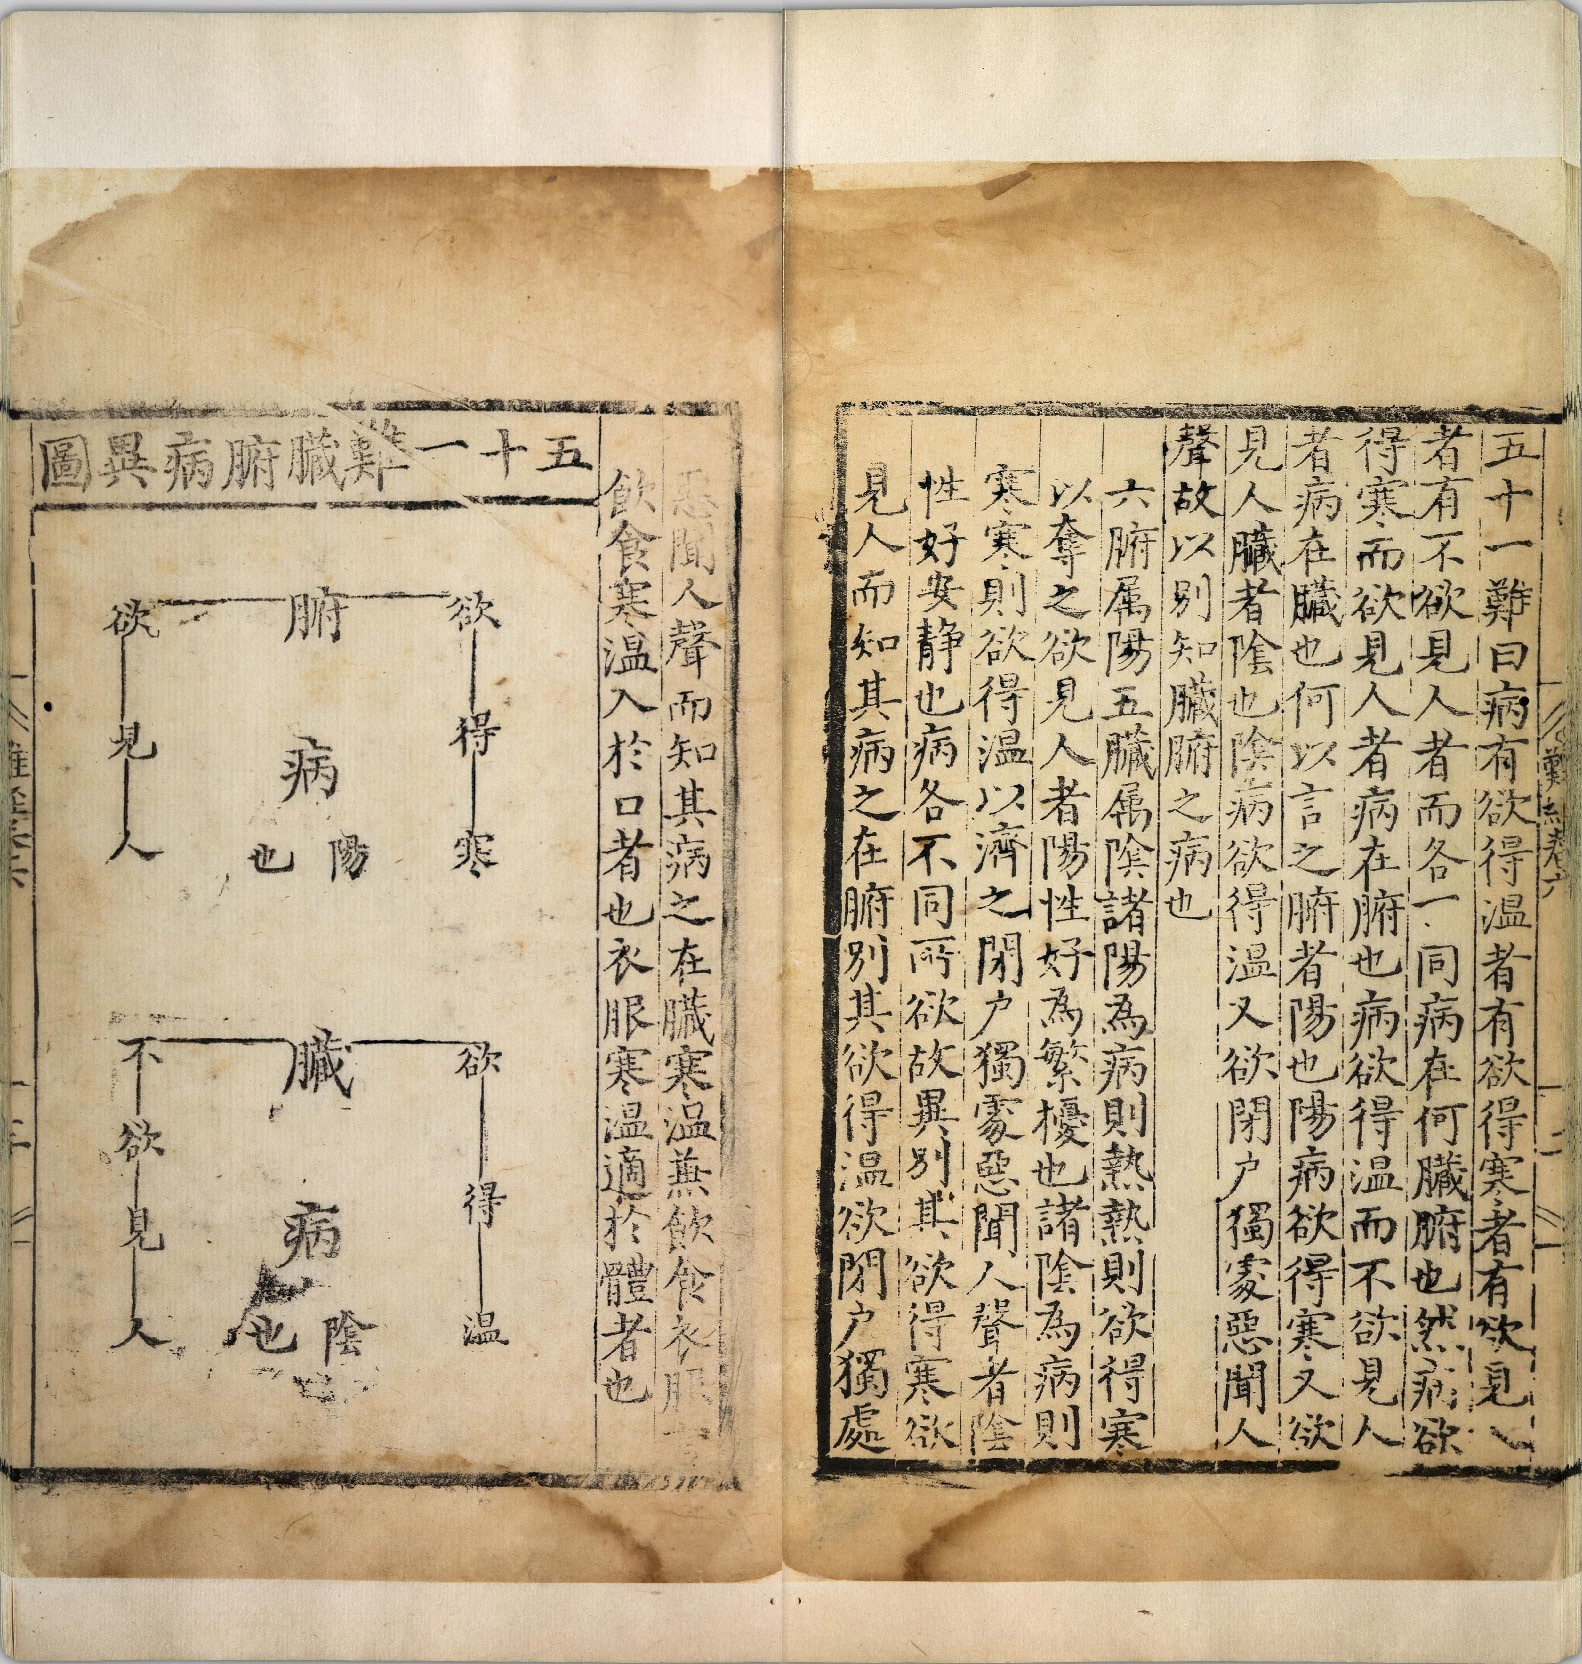 五十一難曰病有欲得温者有欲得寒者有欲見人
者有不欲見人者而各不同病在何臟腑也然病欲
得寒而欲見人者病在腑也病欲得温而不欲見人
者病在臟也何以言之腑者陽也陽病欲得寒又欲
見人臟者陰也陰病欲得温又欲閉户獨處惡聞人
聲故以别知臟腑之病也
六腑属陽五臟属陰諸陽為病則熱熱則欲得寒
以奪之欲見人者陽性好為繁擾也諸陰為病則
寒寒則欲得温以濟之閉户獨處惡聞人聲者陰
性好安静也病各不同所欲故異别其欲得寒欲
見人而知其病之在腑别其欲得温欲閉户獨處
惡聞人聲而知其病之在臟寒温兼飲食衣服言
飲食寒温入於口者也衣服寒温適於體者也
五十一難臟腑病異圖
欲得寒
腑病
陽也
欲見人
欲得温
臟病
陰也
不欲見人
難經卷六
二